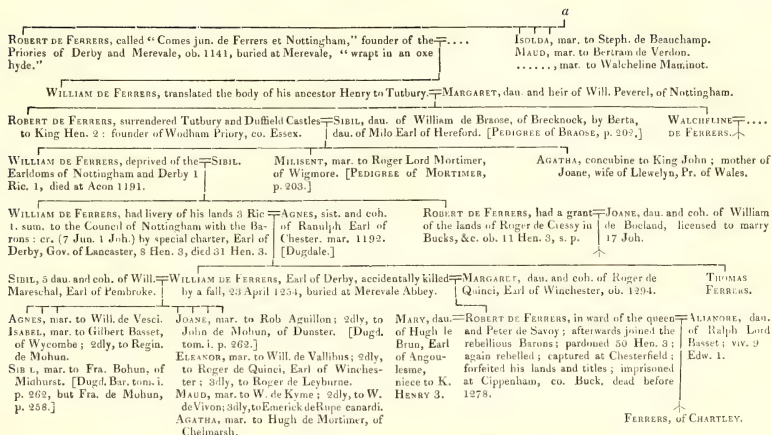 a
ROBERT DE FERRERS, called “Comes jun. de Ferrers et Nottingham,” founder of the
Priories of Derby and Merevale, ob. 1141, buried at Merevale, “wrapt in an oxe
hyde.”
....
ISOLDA, mar. to Steph. de Beauchamp.
MAUD, mar. to Bertram de Verdon.
......, mar. to Walcheline Maminot.
WILLIAM DE FERRERS, translated the body of his ancestor Henry to Tutbury.
MARGARET, dau. and heir of Will. Peverel, of Nottingham.
ROBERT DE FERRERS, surrendered Tutbury and Duffield Castles
to King Hen. 2: founder of Wodham Priory, co. Essex.
SIBIL, dau. of William de Braose, of Brecknock, by Berta,
dau. of Milo Earl of Hereford. [PEDIGREE OF BRAOSE, p. 202.]
WALCHELINE
DE FERRERS.
....
WILLIAM DE FERRERS, deprived of the
Earldoms of Nottingham and Derby 1
Ric. 1, died at Acon 1191.
SIBIL.
MILISENT, mar. to Roger Lord Mortimer,
of Wigmore. [PEDIGREE OF MORTIMER,
p. 203.]
AGATHA, concubine to King John; mother of
Joane, wife of Llewelyn, Pr. of Wales.
WILLIAM DE FERRERS, had livery of his lands 3 Ric
1. sum. to the Council of Nottingham with the Ba-
rons: cr. (7 Jun. 1 Joh.) by special charter, Earl of
Derby, Gov. of Lancaster, 8 Hen. 3, died 31 Hen. 3.
AGNES, sist. and coh.
of Ranulph Earl of
Chester. mar. 1192.
[Dugdale.]
ROBERT DE FERRERS, had a grant
of the lands of Roger de Cressy in
Bucks, &c. ob. 11 Hen. 3, s. p.
JOANE, dau. and coh. of William
de Bocland, licensed to marry
17 Joh.
SIBIL, 5 dau. and coh. of Will.
Mareschal, Earl of Pembroke.
WILLIAM DE FERRERS, Earl of Derby, accidentally killed
by a fall, 23 April 1254, buried at Merevale Abbey.
MARGARET, dau. and coh. of Roger de
Quinci, Earl of Winchester, ob. 1294.
THOMAS
FERRERS.
AGNES, mar. to Will. de Vesci.
ISABEL, mar. to Gilbert Basset,
of Wycombe; 2dly, to Regin.
de Mohun.
SIBIL, mar. to Fra. Bohun, of
Midhurst. [Dugd. Bar. tom. i.
p. 262, but Fra. de Mohun,
p. 258.]
JOANE, mar. to Rob Aguillon; 2dly, to
John de Mohun, of Dunster. [Dugd.
tom. i. p. 262.]
ELEANOR, mar. to Will. de Vallibus; 2dly,
to Roger de Quinci, Earl of Winches-
ter; 3dly, to Roger de Leyburne.
MAUD, mar. to W. de Kyme; 2dly, to W.
de Vivon; 3dly, to Emerick de Rupe canardi.
AGATHA, mar. to Hugh de Mortimer, of
Chelmarsh.
MARY, dau.
of Hugh le
Brun, Earl
of Angou-
lesme,
niece to K.
HENRY 3.
ROBERT DE FERRERS, in ward of the queen
and Peter de Savoy; afterwards joined the
rebellious Barons; pardoned 50 Hen. 3;
again rebelled; captured at Chesterfield;
forfeited his lands and titles; imprisoned
at Cippenham, co. Buck, dead before
1278.
ALIANORE, dau.
of Ralph Lord
Basset; viv. 9
Edw. 1.
FERRERS, OF CHARTLEY.